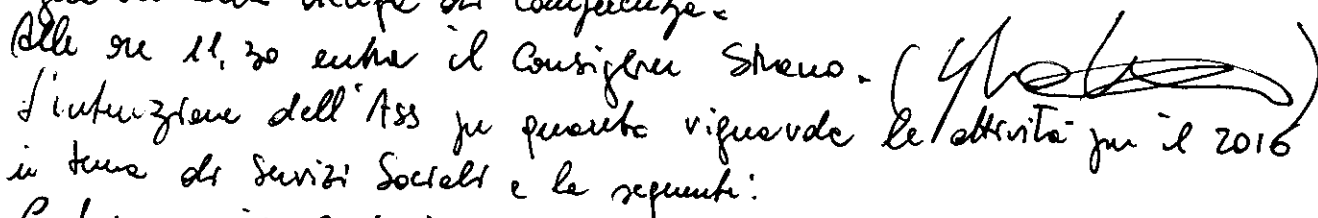 competenze.
Alle ore 11,30 entra il Consigliere Strano. (
L'intenzione dell'Ass per quanto riguarda le attività per il 2016
in tema di Servizi Sociali è la seguente: